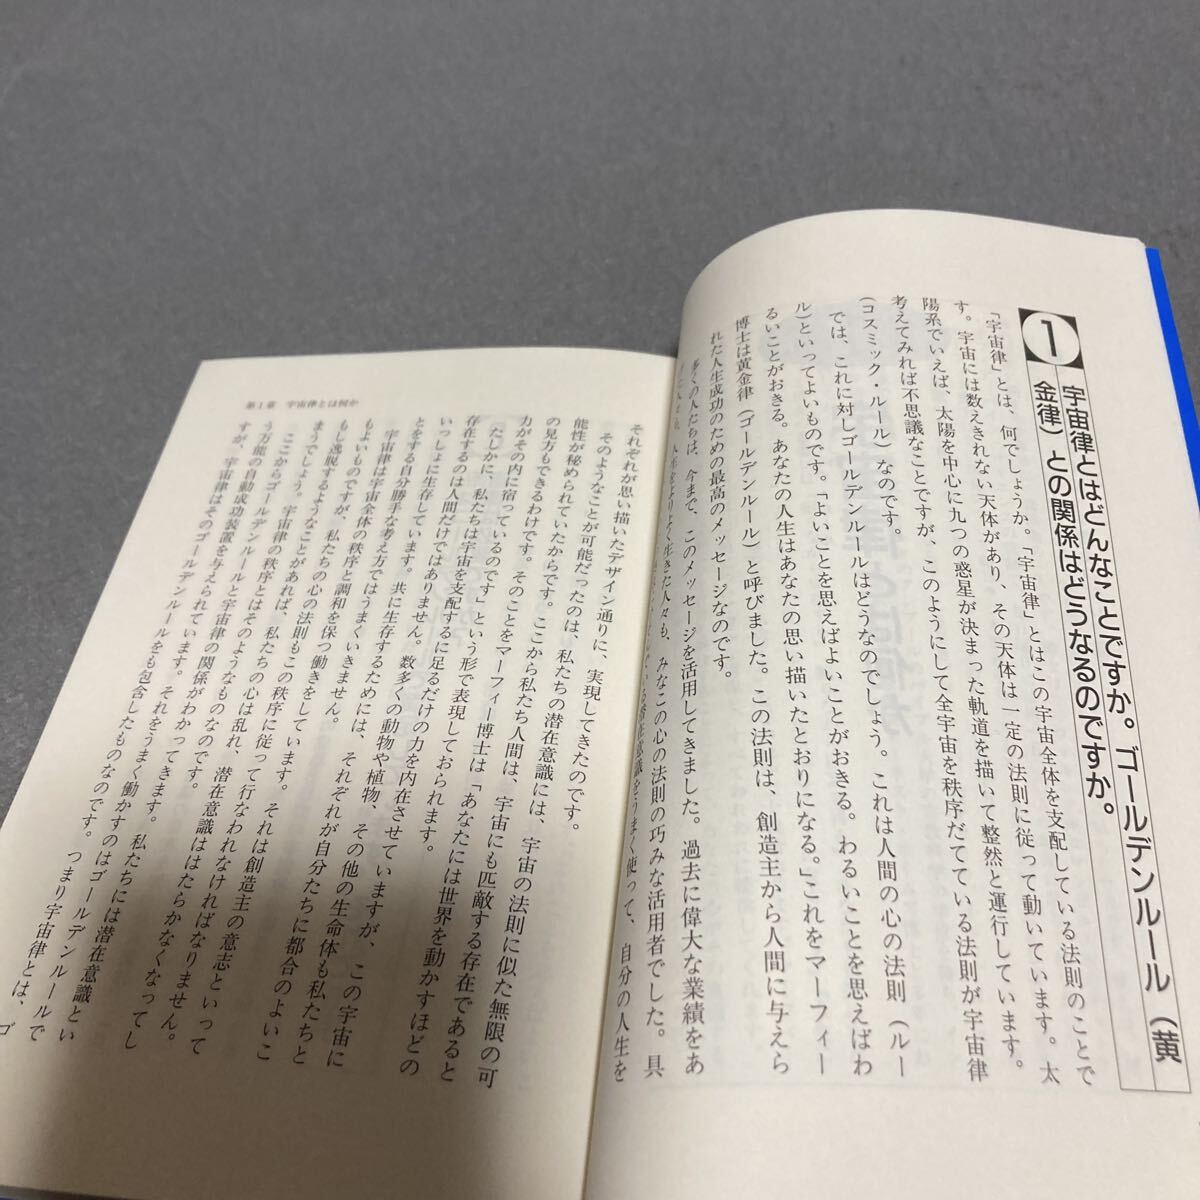 1
宇宙律とはどんなことですか。ゴールデンルール（黄
金律）との関係はどうなるのですか。
「宇宙律」とは、何でしょうか。「宇宙律」とはこの宇宙全体を支配している法則のことで
す。宇宙には数えきれない天体があり、その天体は一定の法則に従って動いています。太
陽系でいえば、太陽を中心に九つの惑星が決まった軌道を描いて整然と運行しています。
考えてみれば不思議なことですが、このようにして全宇宙を秩序だてている法則が宇宙律
（コスミック・ルール）なのです。
では、これに対しゴールデンルールはどうなのでしょう。これは人間の心の法則（ルー
ル）といってよいものです。「よいことを思えばよいことがおきる。わるいことを思えばわ
るいことがおきる。あなたの人生はあなたの思い描いたとおりになる。」これをマーフィー
博士は黄金律（ゴールデンルール）と呼びました。この法則は、創造主から人間に与えら
れた人生成功のための最高のメッセージなのです。
多くの人たちは、今まで、このメッセージを活用してきました。過去に偉大な業績をあ
人生をよりよく生きた人々も、みなこの心の法則の巧みな活用者でした。具
潜在意識をうまく使って、自分の人生を
それぞれが思い描いたデザイン通りに、実現してきたのです。
そのようなことが可能だったのは、私たちの潜在意識には、宇宙の法則に似た無限の可
能性が秘められていたからです。ここから私たち人間は、宇宙にも匹敵する存在であると
の見方もできるわけです。そのことをマーフィー博士は「あなたには世界を動かすほどの
力がその内に宿っているのです」という形で表現しておられます。
たしかに、私たちは宇宙を支配するに足るだけの力を内在させていますが、この宇宙に
存在するのは人間だけではありません。数多くの動物や植物、その他の生命体も私たちと
いっしょに生存しています。共に生存するためには、それぞれが自分たちに都合のよいこ
とをする自分勝手な考え方ではうまくいきません。
宇宙律は宇宙全体の秩序と調和を保つ働きをしています。それは創造主の意志といって
もよいものですが、私たちの心の法則もこの秩序に従って行なわれなければなりません。
もし逸脱するようなことがあれば、私たちの心は乱れ、潜在意識ははたらかなくなってし
まうでしょう。宇宙律の秩序とはそのようなものなのです。
ここからゴールデンルールと宇宙律の関係がわかってきます。私たちには潜在意識とい
う万能の自動成功装置を与えられています。それをうまく働かすのはゴールデンルールで
すが、宇宙律はそのゴールデンルールをも包含したものなのです。つまり宇宙律とは、ゴ
第1章　宇宙律とは何か